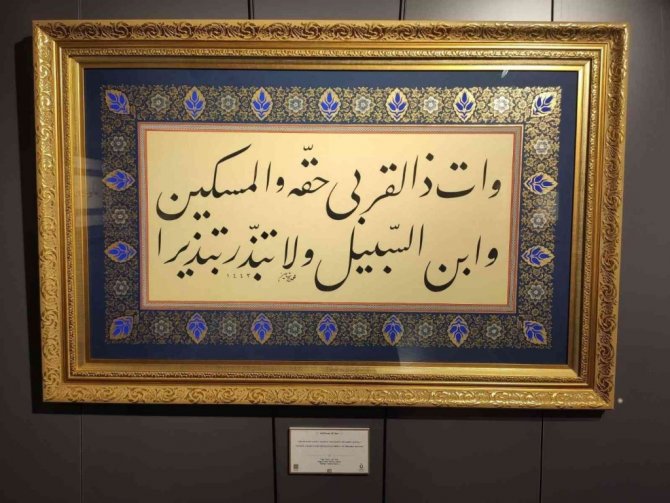 وات ذالقربى حقّه والمسكين
وابن السّبيل ولا تبذّر تبذيرا
١٤٤٣